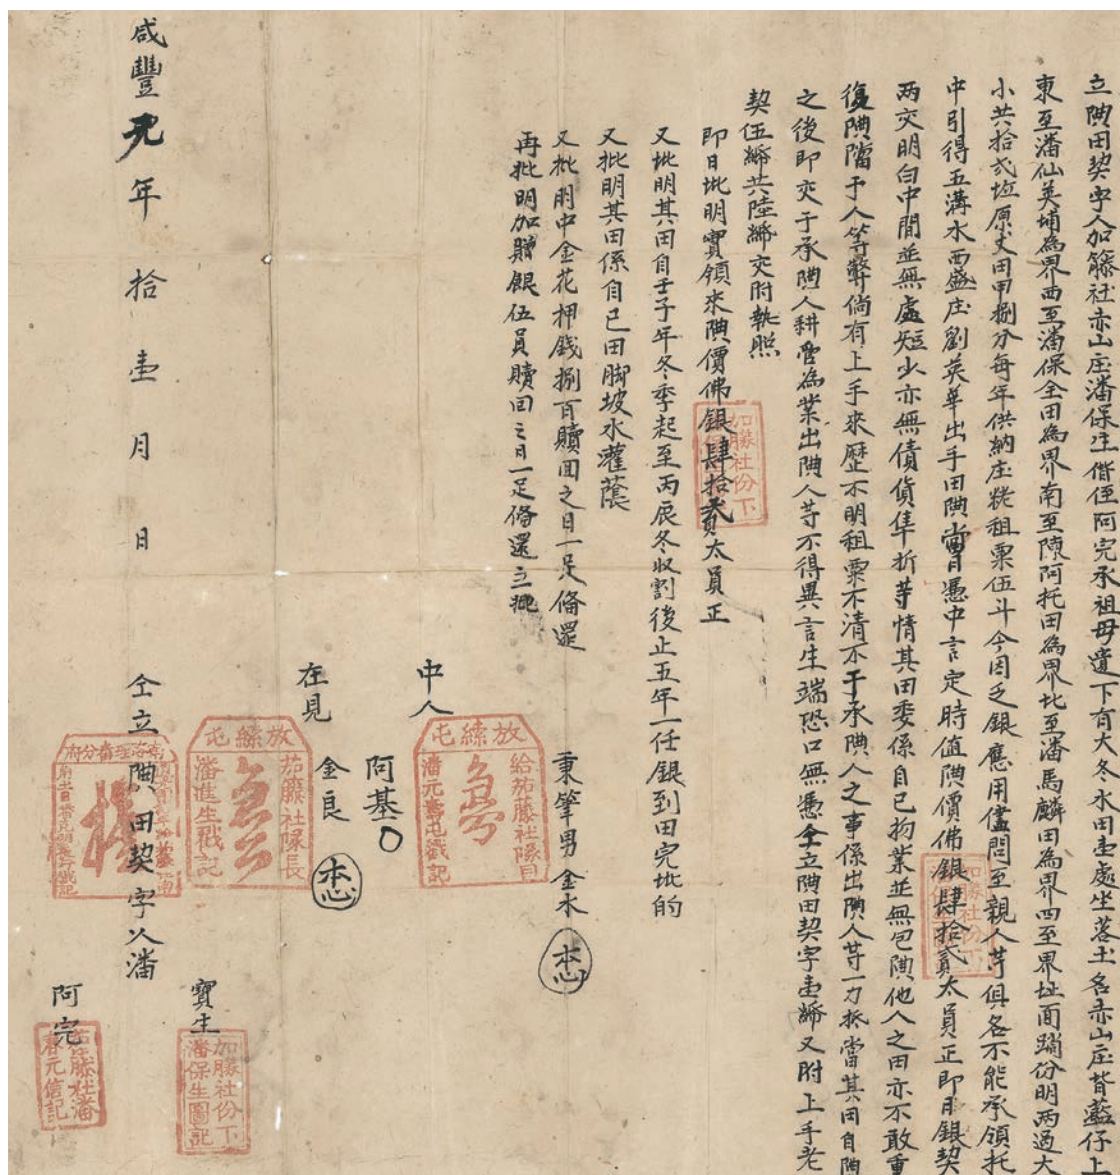 立典田契字人加籐社赤山庄潘保生偕侄阿完承祖母遺下有大冬水田壹處坐落土名赤山庄背藍仔上
東至潘仙英埔為界西至潘保全田為界南至陳阿托田為界北至潘馬麟田為界四至界址面踏份明兩過大
小共拾弍坵原丈田甲捌分每年供納庄耗租粟伍斗今因乏銀應用儘問至親人等俱各不能承領托
中引得五溝水西盛庄劉英華出手田典當日憑中言定時值典價佛銀肆拾貳大員正即日銀契
兩交明白中間並無虛短少亦無債貨隼折等情其田委係自己物業並無包典他人之田亦不敢重
復典當于人等弊倘有上手來歷不明租粟不清不干承典人之事係出典人等一力抵當其田自典
之後即交于承典人耕管為業出典人等不得異言生端恐口無憑仝立典田契字壹紙又附上手老
契伍紙共陸紙交附執照
即日批明實領來典價佛銀肆拾貳大員正
又批明其田自壬子年冬季起至丙辰冬收割後止五年一任銀到田完批的
又批明其田係自己田脚坡水灌蔭
又批明中金花押錢捌百贖回之日一足俻還
再批明加贈銀伍員贖回之日一足俻還立批
秉筆男 金水
中人 阿基
給茄藤社隊目
放縤屯
在見 金良
茄籐社隊長
放縤屯
潘進生戳記
咸豐元年拾壹月 日
仝立典田契字人潘
寶生
加籐社份下
潘保生圖記
阿完